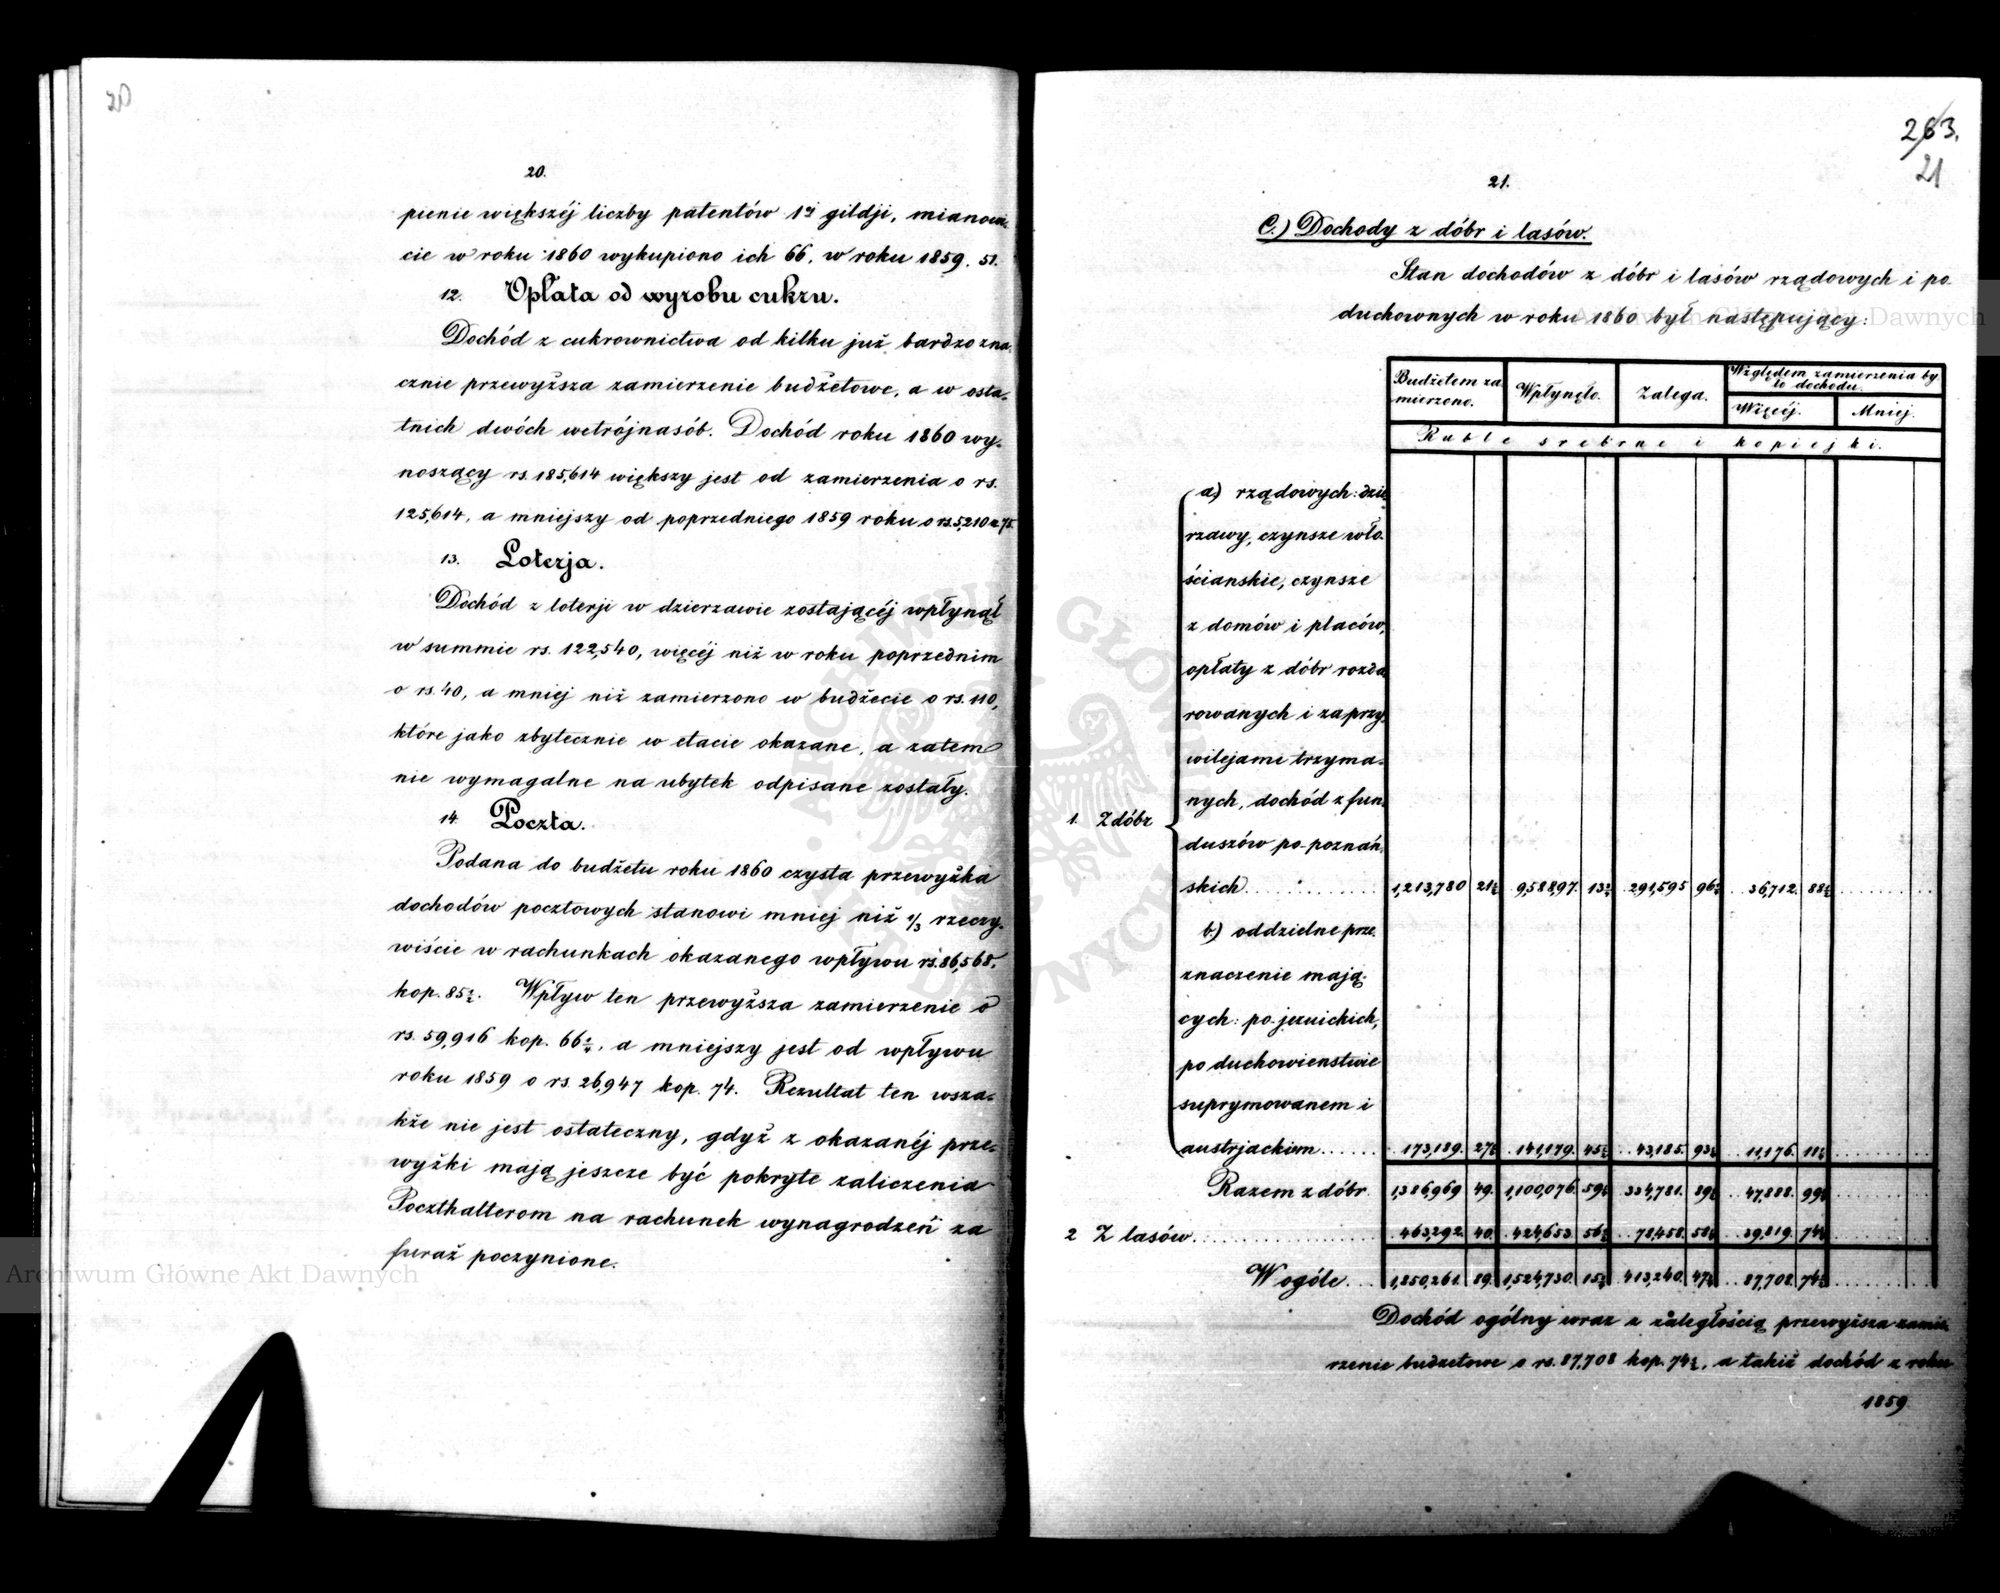 20
20.
pienie większéj liczby patentów 1éj gildji, mianowi-
cie w roku 1860 wykupiono ich 66, w roku 1859. 51.
12. Opłata od wyrobu cukru.
Dochód z cukrownictwa od kilku już bardzo zna-
cznie przewyższa zamierzenie budżetowe, a w osta-
tnich dwóch wetrójnasób. Dochód roku 1860 wy-
noszący rs. 185,614 większy jest od zamierzenia o rs.
125,614, a mniejszy od poprzedniego 1859 roku o rs. 5,210 k. 75.
13. Loterja.
Dochód z loterji w dzierzawie zostającéj wpłynął
w summie rs. 122,540, więcéj niż w roku poprzednim
o rs. 40, a mniej niż zamierzono w budżecie o rs. 110,
które jako zbytecznie w etacie okazane, a zatem
nie wymagalne na ubytek odpisane zostały.
14. Poczta.
Podana do budżetu roku 1860 czysta przewyżka
dochodów pocztowych stanowi mniej niż 1/3 rzeczy-
wiście w rachunkach okazanego wpływu rs. 86,568,
kop. 85½. Wpływ ten przewyższa zamierzenie o
rs. 59,916 kop. 66¼, a mniejszy jest od wpływu
roku 1859 o rs. 26,947 kop. 74. Rezultat ten wsza-
kże nie jest ostateczny, gdyż z okazanéj prze-
wyżki mają jeszcze być pokryte zaliczenia
Poczthalterom na rachunek wynagrodzeń za
furaż poczynione.
263.
21
21.
C.) Dochody z dóbr i lasów.
Stan dochodów z dóbr i lasów rządowych i po-
duchownych w roku 1860 był następujący:
Budżetem za-
mierzono. Wpłynęło. Zalega. Względem zamierzenia by-
ło dochodu.
Więcéj. Mniej.
Ruble srebrne i kopiejki.
a) rządowych: dzie-
rzawy, czynsze wło-
ścianskie, czynsze
z domów i placów,
opłaty z dóbr rozda-
rowanych i za przy-
wilejami trzyma-
nych, dochód z fun-
1. Z dóbr
duszów po-poznań-
skich 1,213,780 21½ 958,897. 13¾ 291,595 96¾ 36,712. 88½
b.) oddzielne prze-
znaczenie mają-
cych: po-jezuickich,
po duchowienstwie
suprymowanem i
austrjackiem 173,189. 27½ 141,179. 45½ 43,185. 93½ 11,176. 11½
Razem z dóbr 1,386,969 49. 1,100,076. 59 334,781. 89 47,888. 99
2 Z lasów 463,292. 40 424,653. 56 78,458. 58 39,819. 74
W ogóle 1,850,261. 89. 1,524,730. 15 413,240. 47 87,708. 74
Dochód ogólny wraz z zaległością przewyższa zamie-
rzenie budżetowe o rs. 87,708 kop. 74½, a takiż dochód z roku
1859
ARCHIWUM GŁÓWNE AKT DAWNYCH
Archiwum Główne Akt Dawnych
Archiwum Główne Akt Dawnych